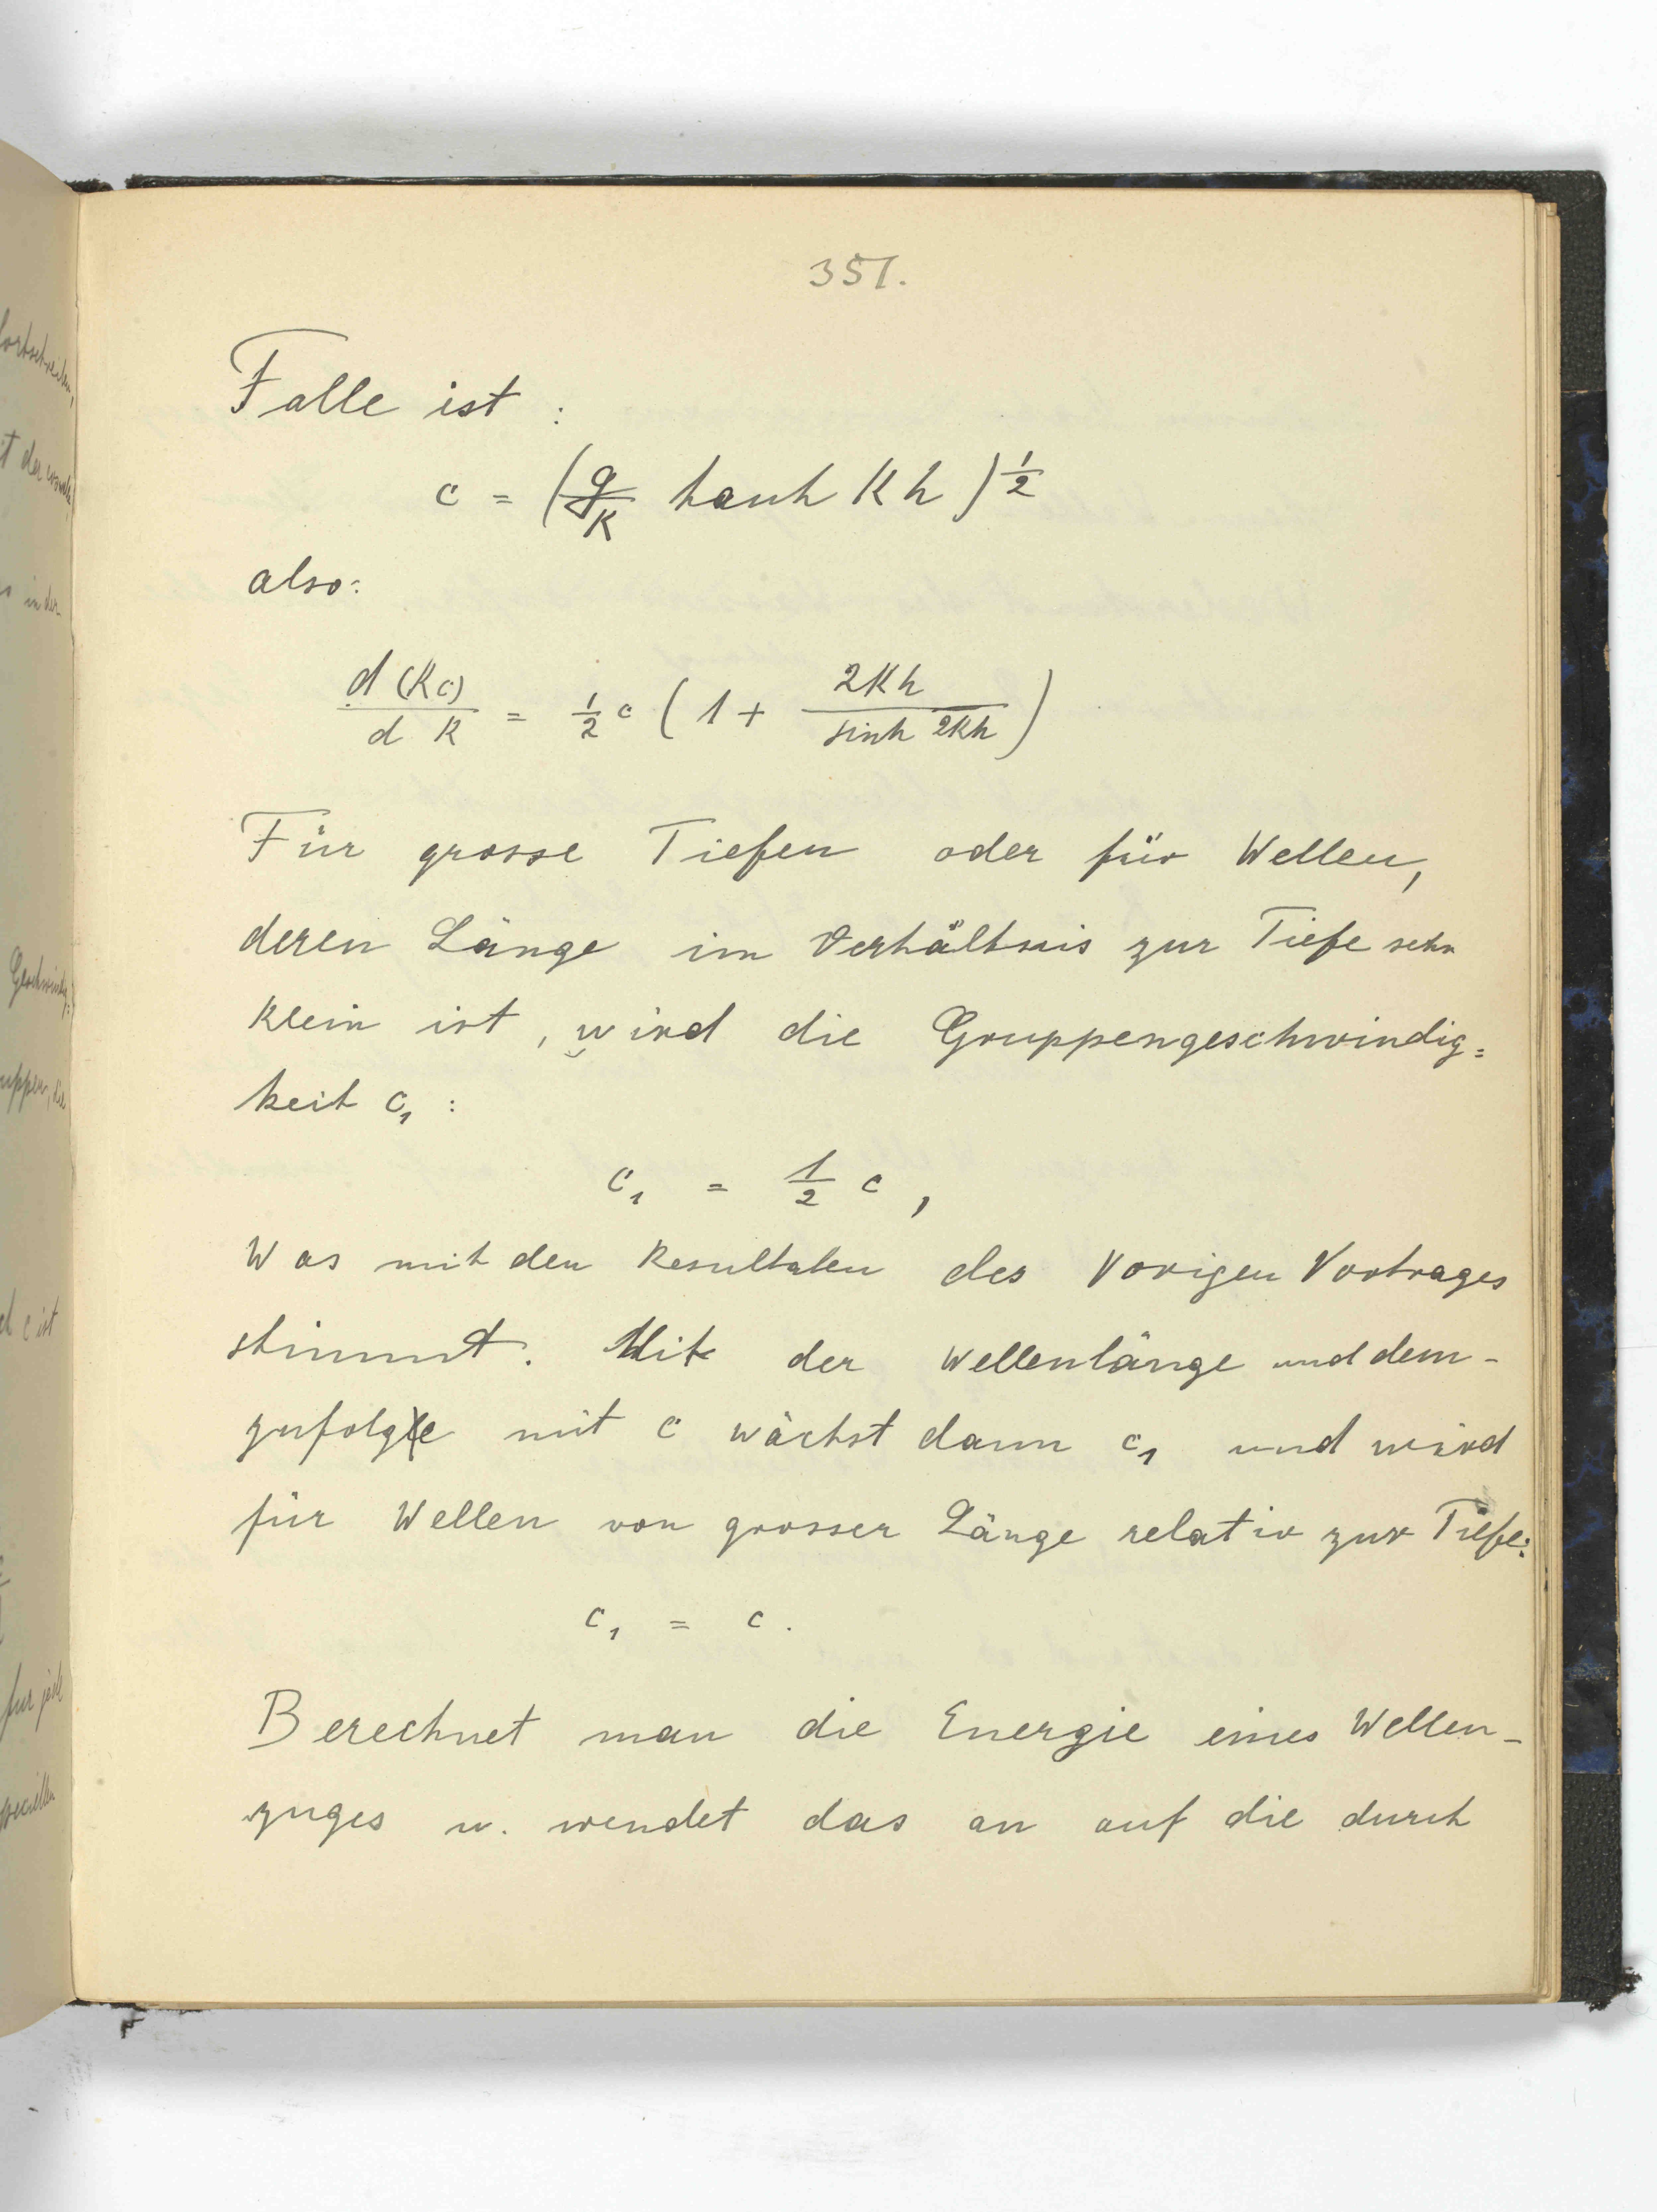 351.
Falle ist :
c = (g/K tanh K h)^1/2
also:
d (K c) / d K = 1/2 c (1 + 2Kh / sinh 2Kh)
Für grosse Tiefen oder für Wellen,
deren Länge im Verhältnis zur Tiefe sehr
klein ist, wird die Gruppengeschwindig=
keit c₁ :
c₁ = 1/2 c ,
Was mit den Resultaten des Vorigen Vortrages
stimmt. Mit der Wellenlänge und dem-
zufolge mit c wächst dann c₁ und wird
für Wellen von grosser Länge relativ zur Tiefe:
c₁ = c .
Berechnet man die Energie eines Wellen-
zuges u. wendet das an auf die durch